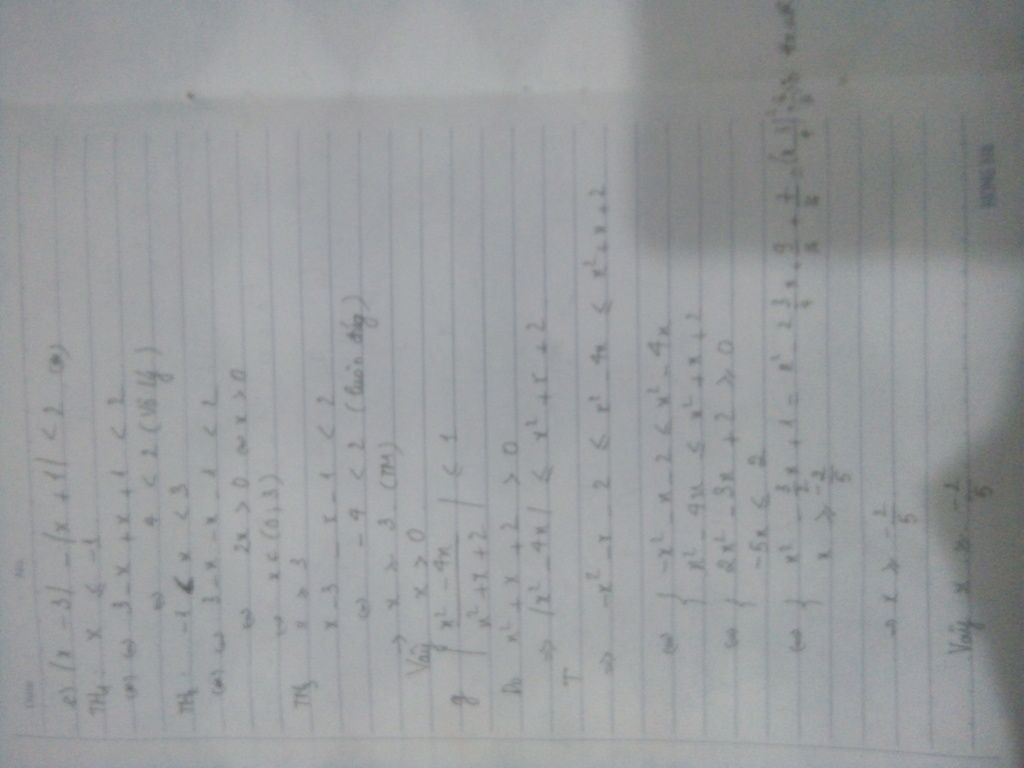 e) |x - 3| - |x + 1| < 2 (*)
TH1: x ≤ -1
(*) ⇔ 3 - x + x + 1 < 2
⇔ 4 < 2 (Vô lý)
TH2: -1 < x < 3
(*) ⇔ 3 - x - x - 1 < 2
⇔ 2x > 0 ⇔ x > 0
⇒ x ∈ (0, 3)
TH3 x ≥ 3
x - 3 - x - 1 < 2
⇔ -4 < 2 (luôn đúng)
⇒ x ≥ 3 (TM)
Vậy x > 0
g | x² - 4x / x² + x + 2 | ≤ 1
Do x² + x + 2 > 0
⇒ |x² - 4x| ≤ x² + x + 2
T
⇒ -x² - x - 2 ≤ x² - 4x ≤ x² + x + 2
⇔ { -x² - x - 2 ≤ x² - 4x
{ x² - 4x ≤ x² + x + 2
⇔ { 2x² - 3x + 2 ≥ 0
-5x ≤ 2
⇔ { x² - 3/2 x + 1 = x² 2 3/4 x + 9/16 + 7/16 = (x 3/4)²
x ≥ -2/5
⇒ x ≥ -2/5
Vậy x ≥ -2/5